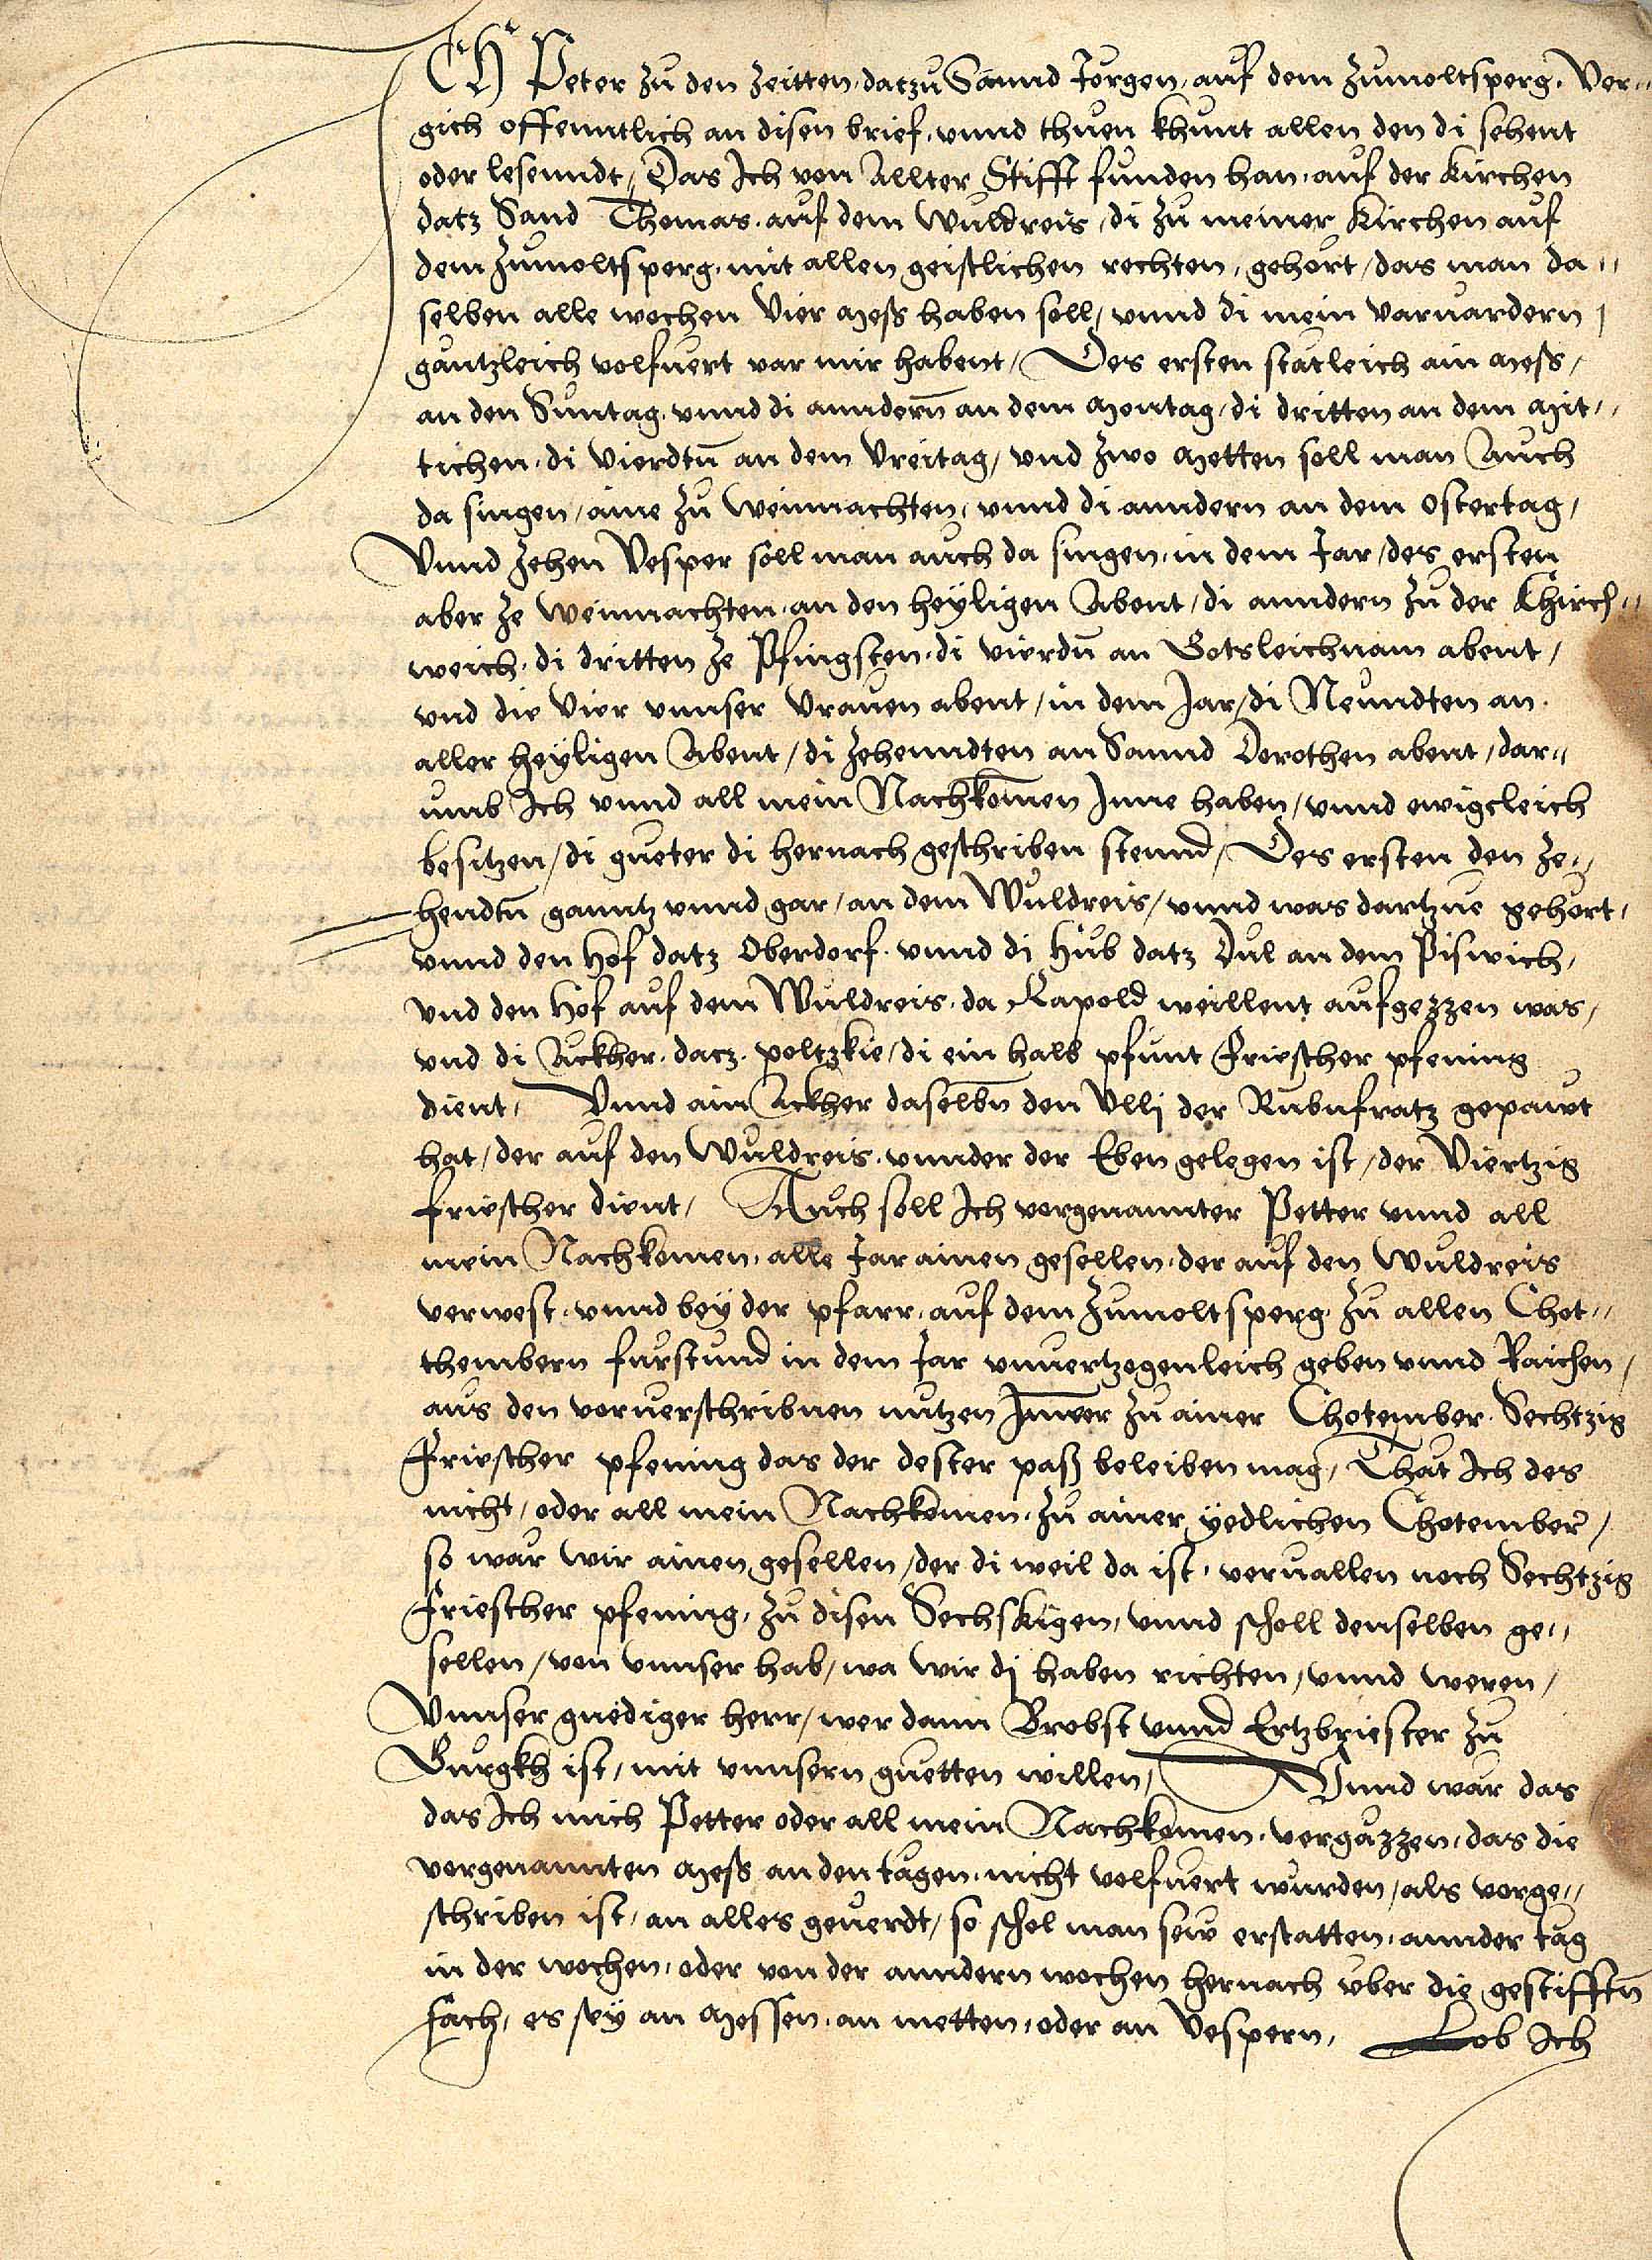 ICH Peter zu den Zeitten, datzu Sannd Jörgen, auf dem Zumoltsperg. Ver-
gich offenntlich an disen brief, vnnd thuen khunt allen den di sehent
oder lesenndt, Das Ich von Allter Stifft funden han, auf der Kirchen
datz Sand Thomas, auf dem Wuldreis, di zu meiner Kirchen auf
dem Zumoltsperg, mit allen geistlichen rechten, gehört, das man da-
selben alle wochen Vier Mess haben soll, vnnd di mein varuardern
gäntzleich volfuert var mir habent, Des ersten stätleich ain Mess,
an den Suntag, vnnd di anndern an dem Montag, di dritten an dem Mit-
tichen, di Vierdtn an dem Vreitag, vnd zwo Metten soll man Auch
da singen, aine zu Weinnachten, vnnd di anndern an dem Ostertag,
Vnnd zehen Vesper soll man auch da singen, in dem Jar, des ersten
aber ze Weinnachten, an den heyligen Abent, di anndern zu der Khirch-
weich, di dritten ze Pfingsten, di vierdn an Gotsleichnam abent,
vnd die Vier vnnser Vrauen abent, in dem Jar, di Neundten an
aller heyligen Abent, di zehenndten an Sannd Dorothen abent, dar-
umb Ich vnnd all mein Nachkomen Inne haben, vnnd ewigcleich
besitzen, di gueter di hernach geschriben stennd, Des ersten den Ze-
hendtn ganntz vnnd gar, an dem Wuldreis, vnnd was dartzue gehört,
vnnd den Hof datz Oberdorf, vnnd di Hub datz Dul an dem Piswich,
vnd den Hof auf dem Wuldreis, da Rapold weillent aufgezzen was,
vnd di Äckher, datz poltzkie, di ein halb pfunt Friescher pfening
dient, Vnnd ain Ackher daselbn den Vlli der Rubnfratz gepawt
hat, der auf den Wuldreis, vnnder der Eben gelegen ist, der Viertzig
friescher dient, Auch soll Ich vorgenannter Petter vnnd all
mein Nachkomen, alle Jar ainen gesellen, der auf den Wuldreis
verwest, vnnd bey der pfarr, auf dem Zumoltsperg, zu allen Chot-
thembern furstund in dem Jar vnuertzogenleich geben vnnd Raichen,
aus den vorverschribnen nutzen Immer zu ainer Chotember, Sechtzig
Friescher pfening das der dester pasz beleiben mag, Thät Ich des
nicht, oder all mein Nachkomen, zu ainer yedlichen Chotember,
so wär wir ainen gesellen, der di weil da ist, veruallen noch Sechtzig
Friescher pfening, zu disen Sechskigen, vnnd scholl denselben ge-
sellen, von vnnser hab, wa wir di haben richten, vnnd weren,
Vnnser gnediger herr, wer dann Brobst vnnd Ertzbriester zu
Gurgkh ist, mit vnnsern guetten willen, Vnnd wär das
das Ich mich Petter oder all mein Nachkomen, vergäzzen, das die
vorgenannten Mess an den tägen, nicht volfuert wurden, als vorge-
schriben ist, an alles geuerdt, so schol man sew erstatten, annder täg
in der wochen, oder von der anndern wochen hernach vber die gestifftn
sach, es sey an Messen, an metten, oder an Vespern, Lob Ich